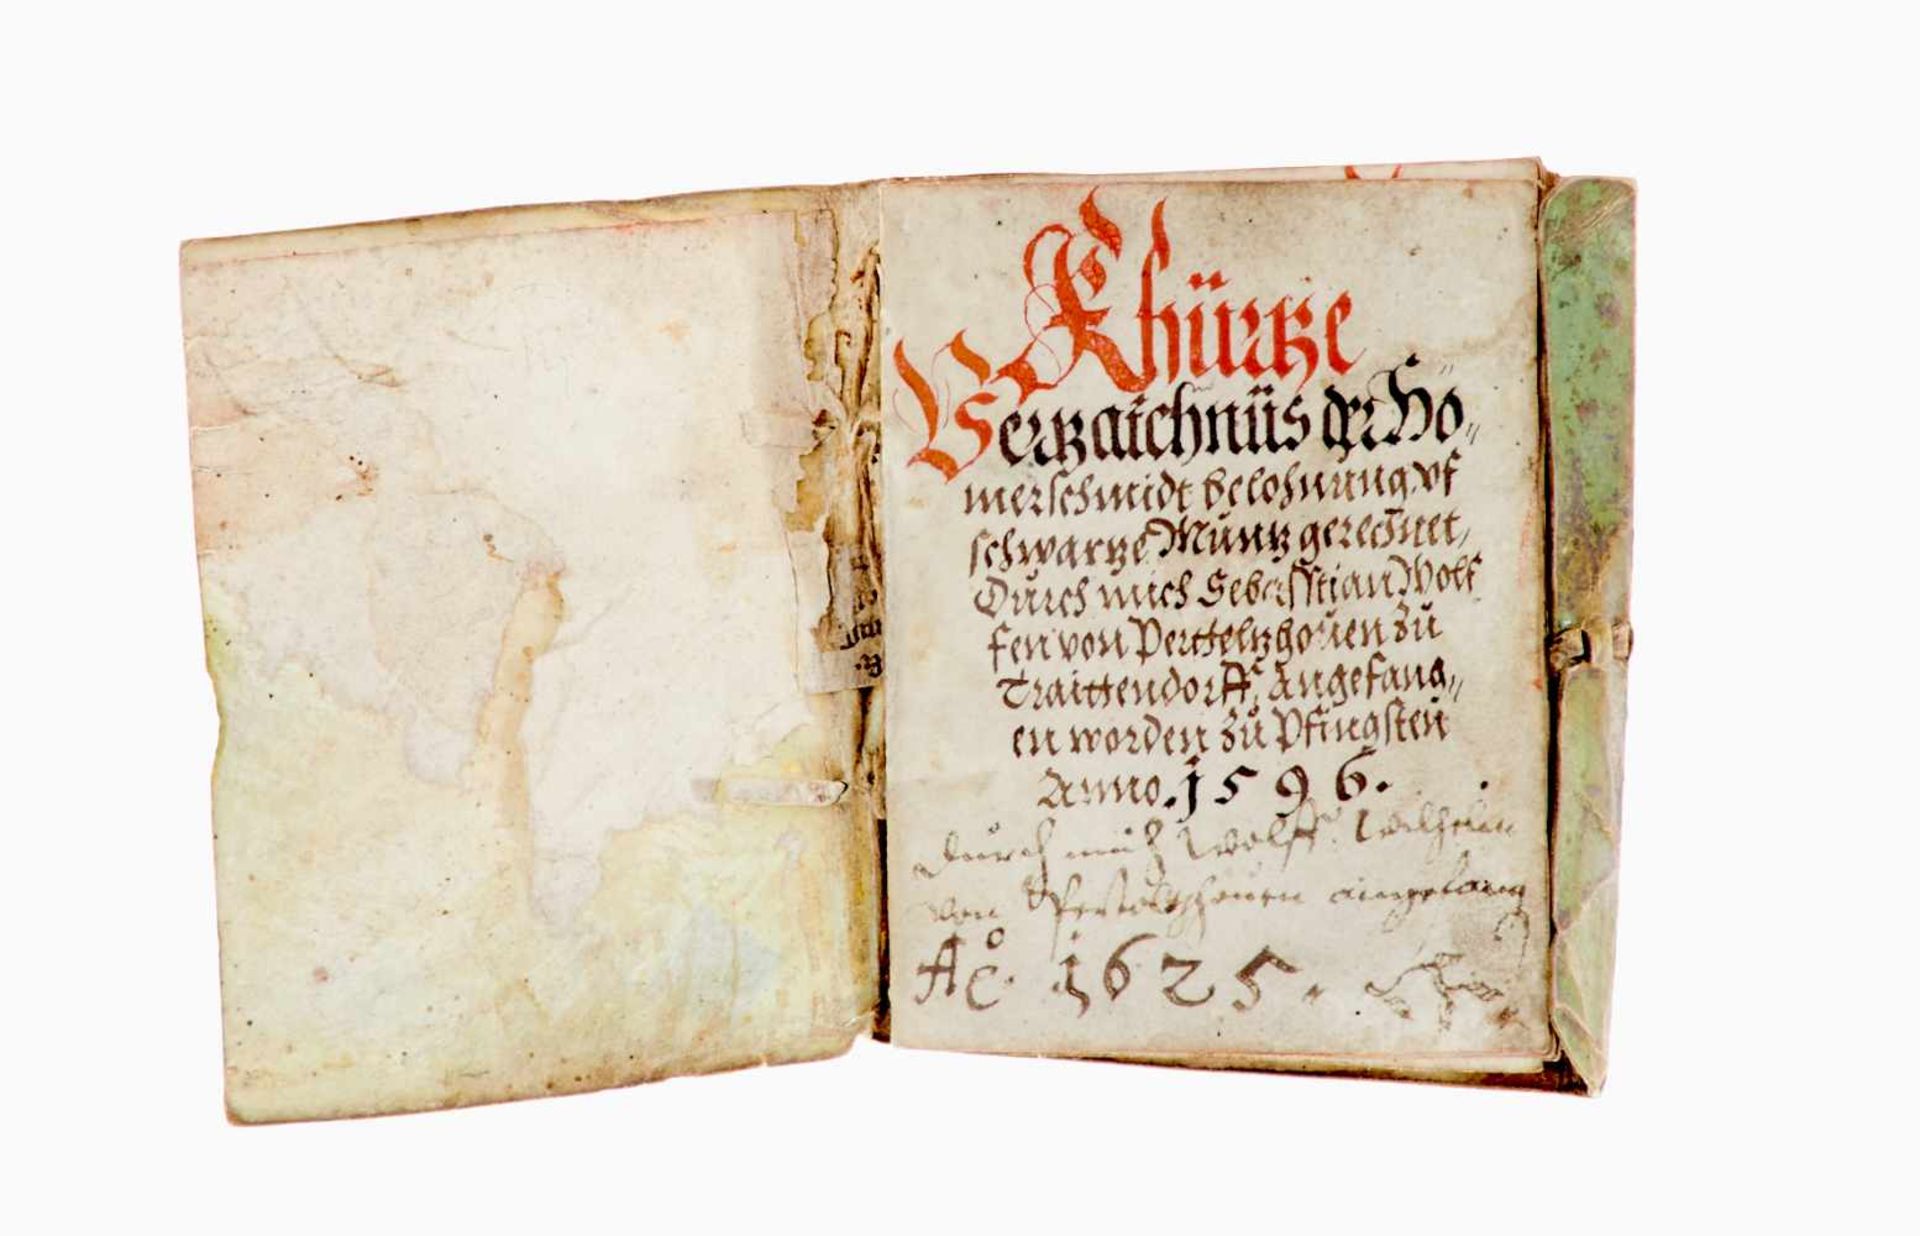 Khürtze
Vertzaichnüs der Ho„
merschmidt belohnung vf
schwartze Müntz gerechnet,
Durch mich Sebasstian Wolf
fen von Pertteltzhouen zu
Traittendorff, Angefang„
en worden zu Pfingsten
Anno. 1596.
Durch mich Wolff Wilhelm
von angefang
Ao. 1625.